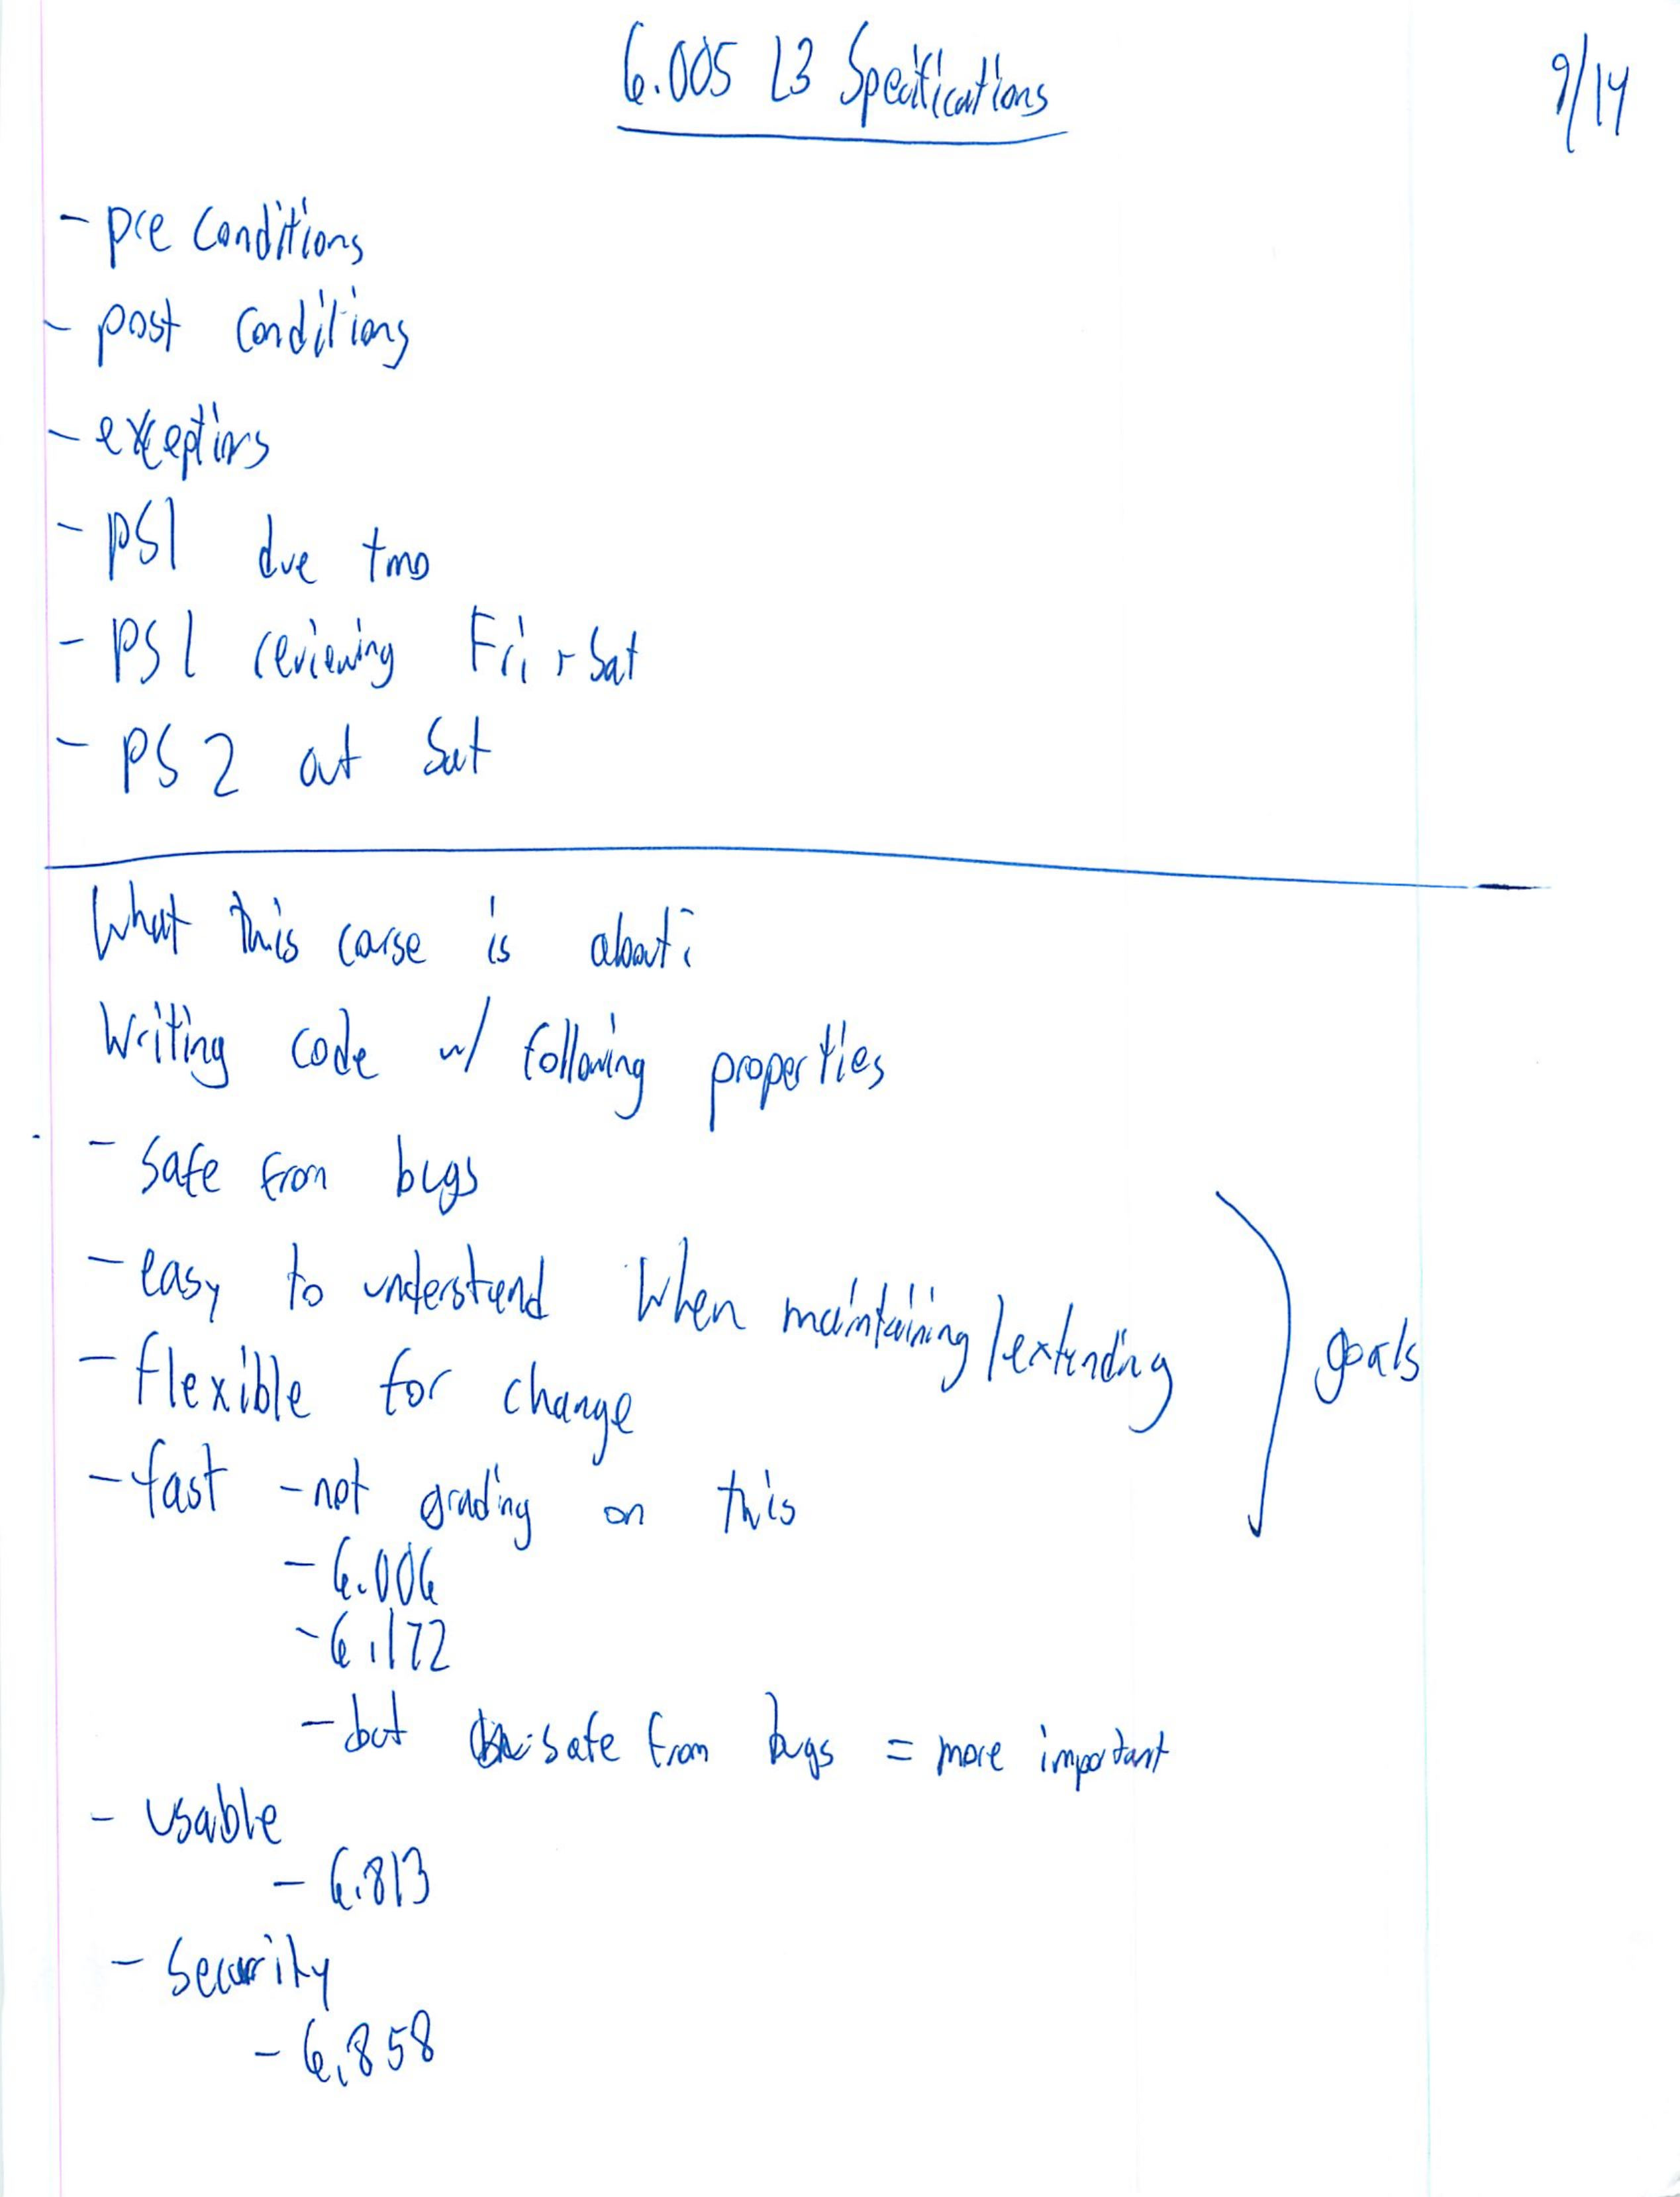 6.005 L3 Specifications
9/14
- pre conditions
- post conditions
- exceptions
- PS1 due tmo
- PS1 reviewing Fri + Sat
- PS2 out Sat
What this course is about:
Writing code w/ following properties
- safe from bugs
- easy to understand when maintaining/extending
- flexible for change
goals
- fast - not grading on this
- 6.006
- 6.172
- but safe from bugs = more important
- usable
- 6.813
- security
- 6.858